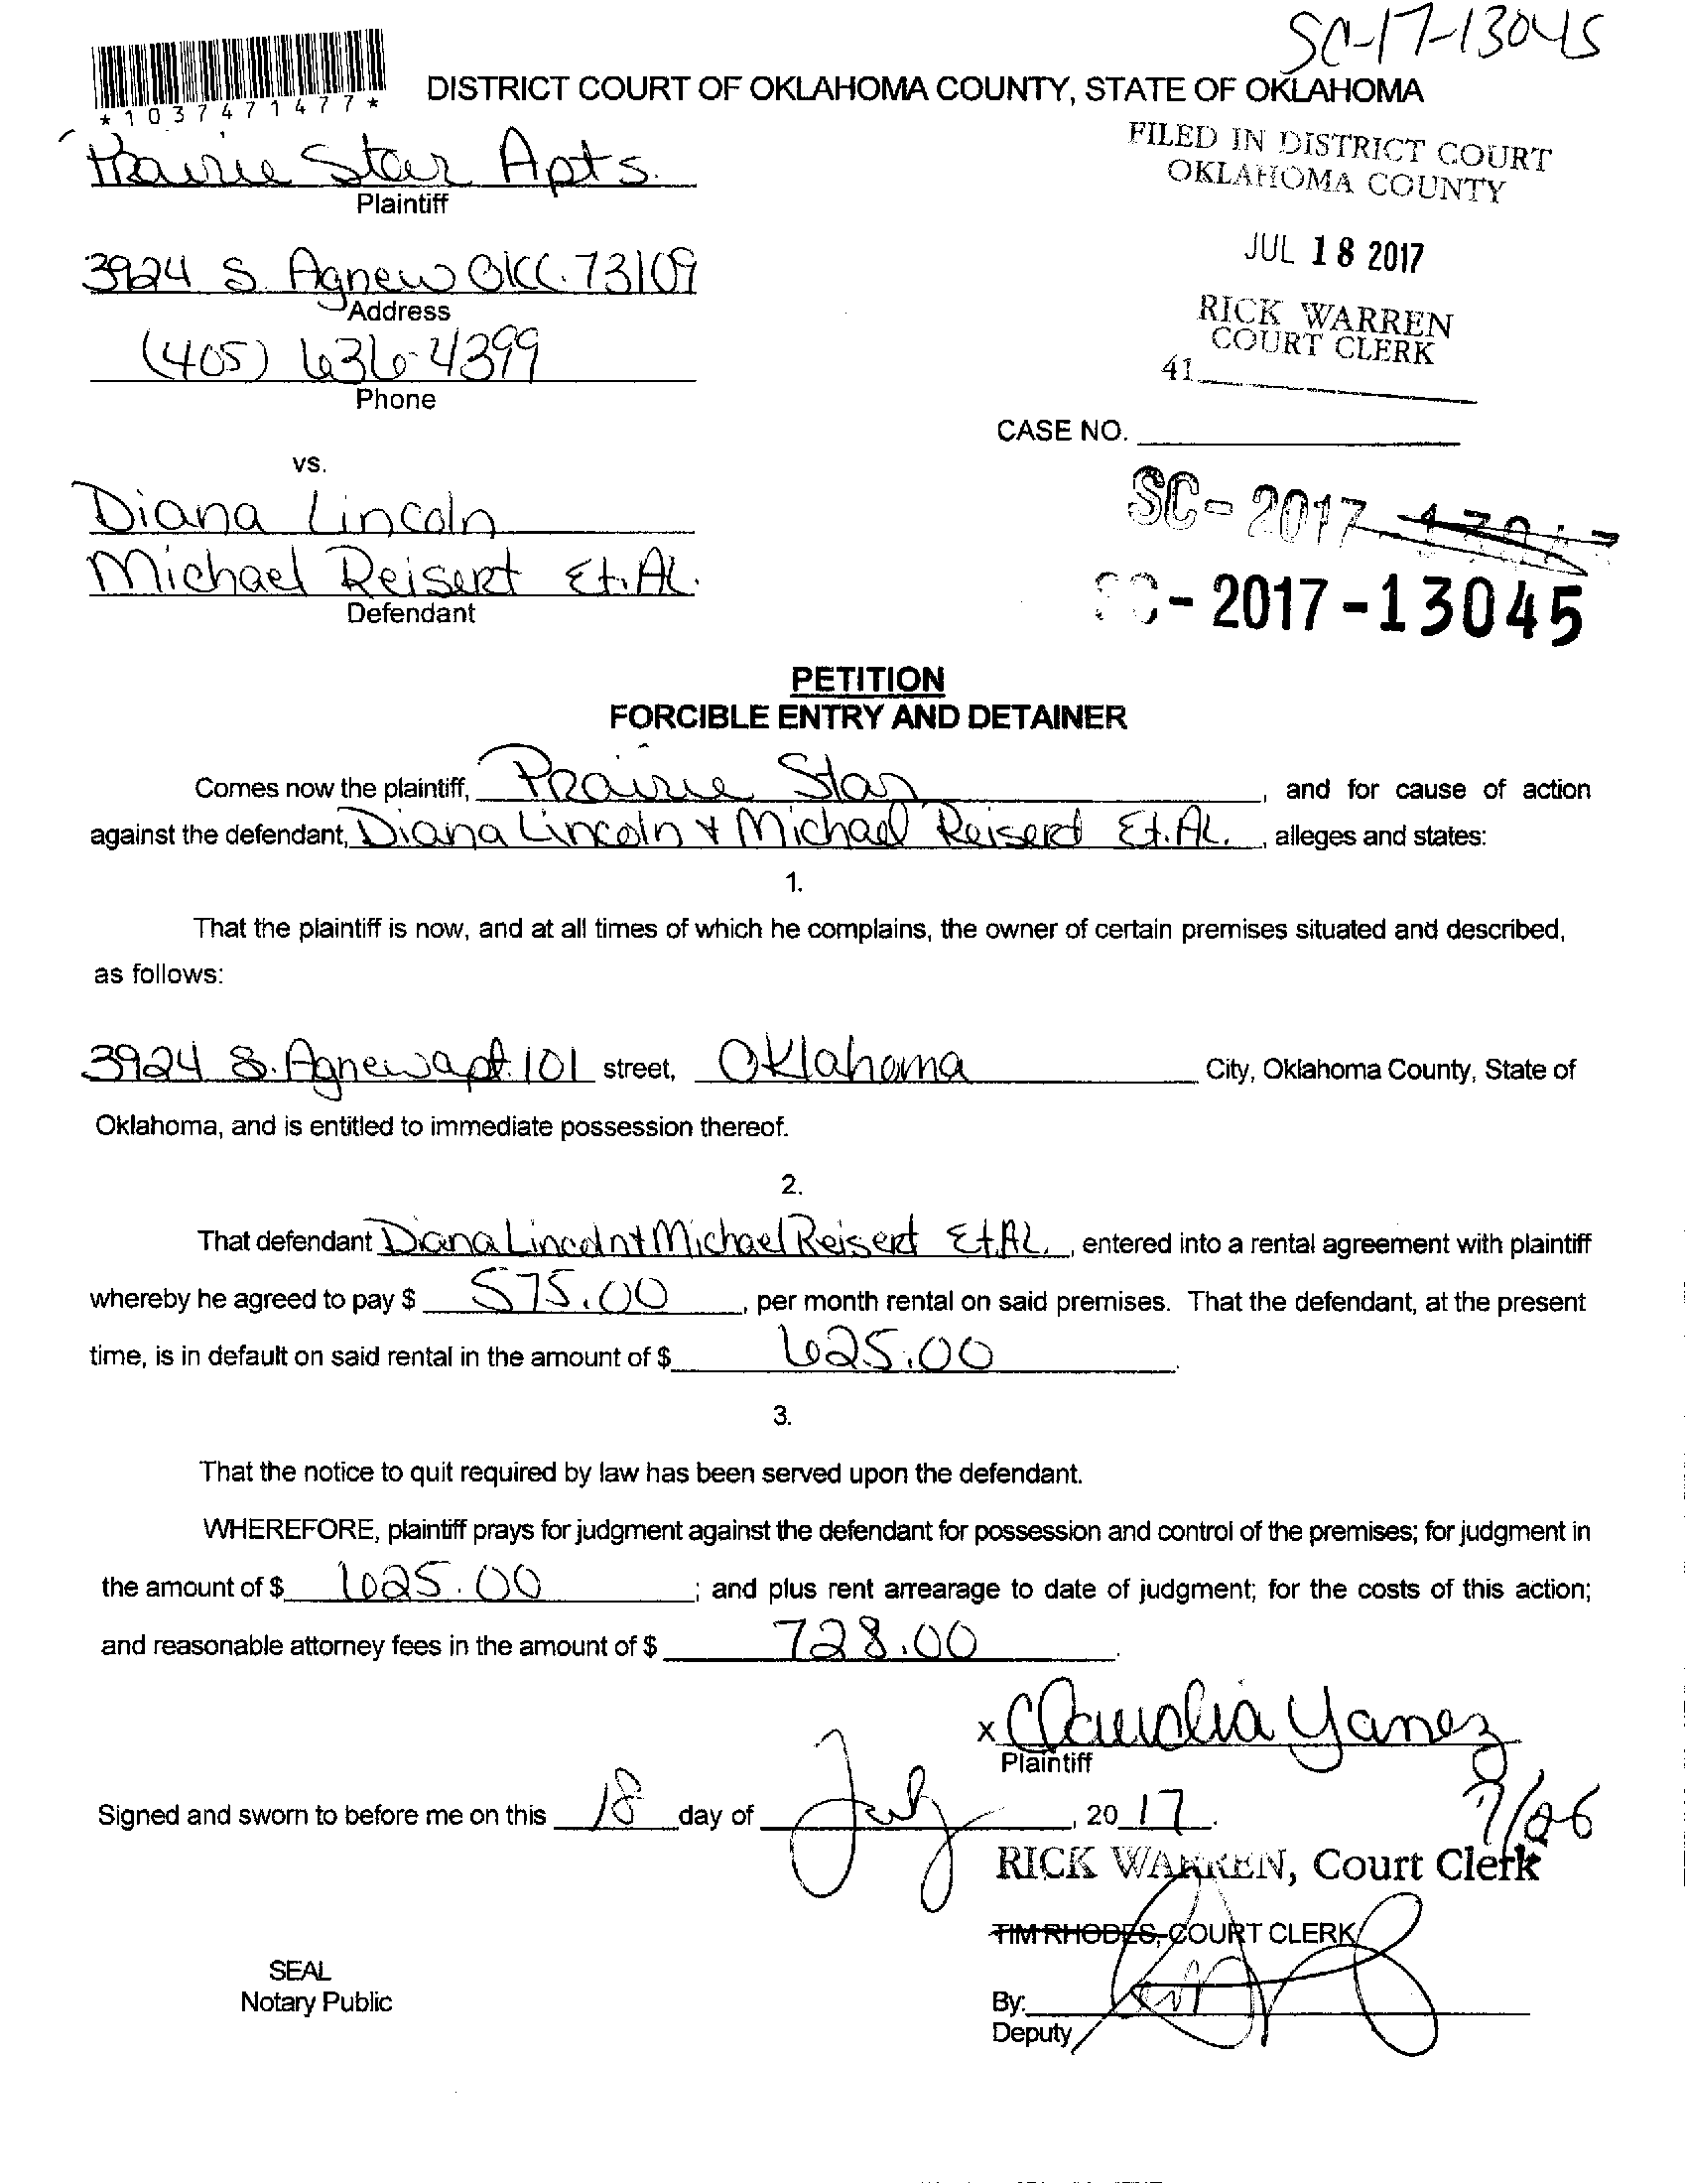 SC-17-13045
*1037471477*
DISTRICT COURT OF OKLAHOMA COUNTY, STATE OF OKLAHOMA
Prairie Star Apts.
Plaintiff
FILED IN DISTRICT COURT
OKLAHOMA COUNTY
JUL 18 2017
RICK WARREN
COURT CLERK
41
3924 S. Agnew OKC. 73109
Address
(405) 636-4399
Phone
CASE NO.
vs.
Diana Lincoln
Michael Reisert Et. AL.
Defendant
SC-2017
SC-2017-13045
PETITION
FORCIBLE ENTRY AND DETAINER
Comes now the plaintiff, Prairie Star, and for cause of action
against the defendant, Diana Lincoln + Michael Reisert Et. AL., alleges and states:
1.
That the plaintiff is now, and at all times of which he complains, the owner of certain premises situated and described,
as follows:
3924 S. Agnew apt. 101 street, Oklahoma City, Oklahoma County, State of
Oklahoma, and is entitled to immediate possession thereof.
2.
That defendant Diana Lincoln + Michael Reisert Et. AL., entered into a rental agreement with plaintiff
whereby he agreed to pay $ 575.00, per month rental on said premises. That the defendant, at the present
time, is in default on said rental in the amount of $ 625.00.
3.
That the notice to quit required by law has been served upon the defendant.
WHEREFORE, plaintiff prays for judgment against the defendant for possession and control of the premises; for judgment in
the amount of $ 625.00; and plus rent arrearage to date of judgment; for the costs of this action;
and reasonable attorney fees in the amount of $ 728.00.
x Claudia Yanez
Plaintiff
7/26
Signed and sworn to before me on this 18 day of July, 20 17.
RICK WARREN, Court Clerk
TIM RHODES, COURT CLERK
SEAL
Notary Public
By:
Deputy